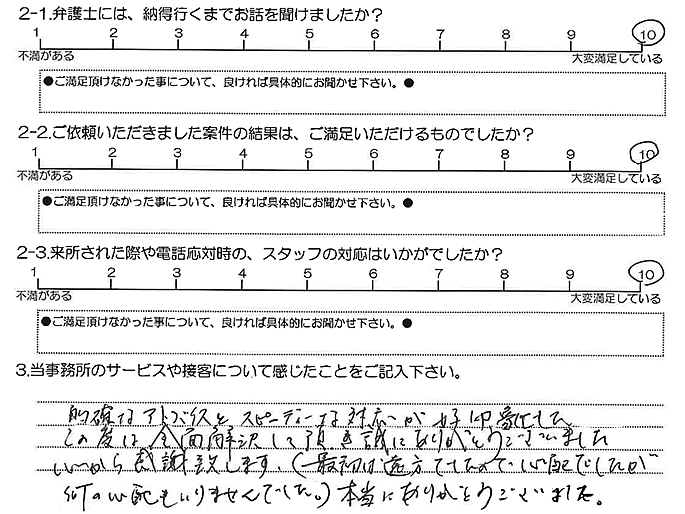 2-1.弁護士には、納得行くまでお話を聞けましたか？
1 2 3 4 5 6 7 8 9 10
不満がある 大変満足している
●ご満足頂けなかった事について、良ければ具体的にお聞かせ下さい。●
2-2.ご依頼いただきました案件の結果は、ご満足いただけるものでしたか？
1 2 3 4 5 6 7 8 9 10
不満がある 大変満足している
●ご満足頂けなかった事について、良ければ具体的にお聞かせ下さい。●
2-3.来所された際や電話応対時の、スタッフの対応はいかがでしたか？
1 2 3 4 5 6 7 8 9 10
不満がある 大変満足している
●ご満足頂けなかった事について、良ければ具体的にお聞かせ下さい。●
3.当事務所のサービスや接客について感じたことをご記入下さい。
的確なアドバイスと スピーディーな対応が 好印象でした
この度は 全面解決して頂き誠にありがとうございました
心から感謝致します。(最初は遠方でしたので心配でしたが
何の心配もいりませんでした。)本当にありがとうございました。